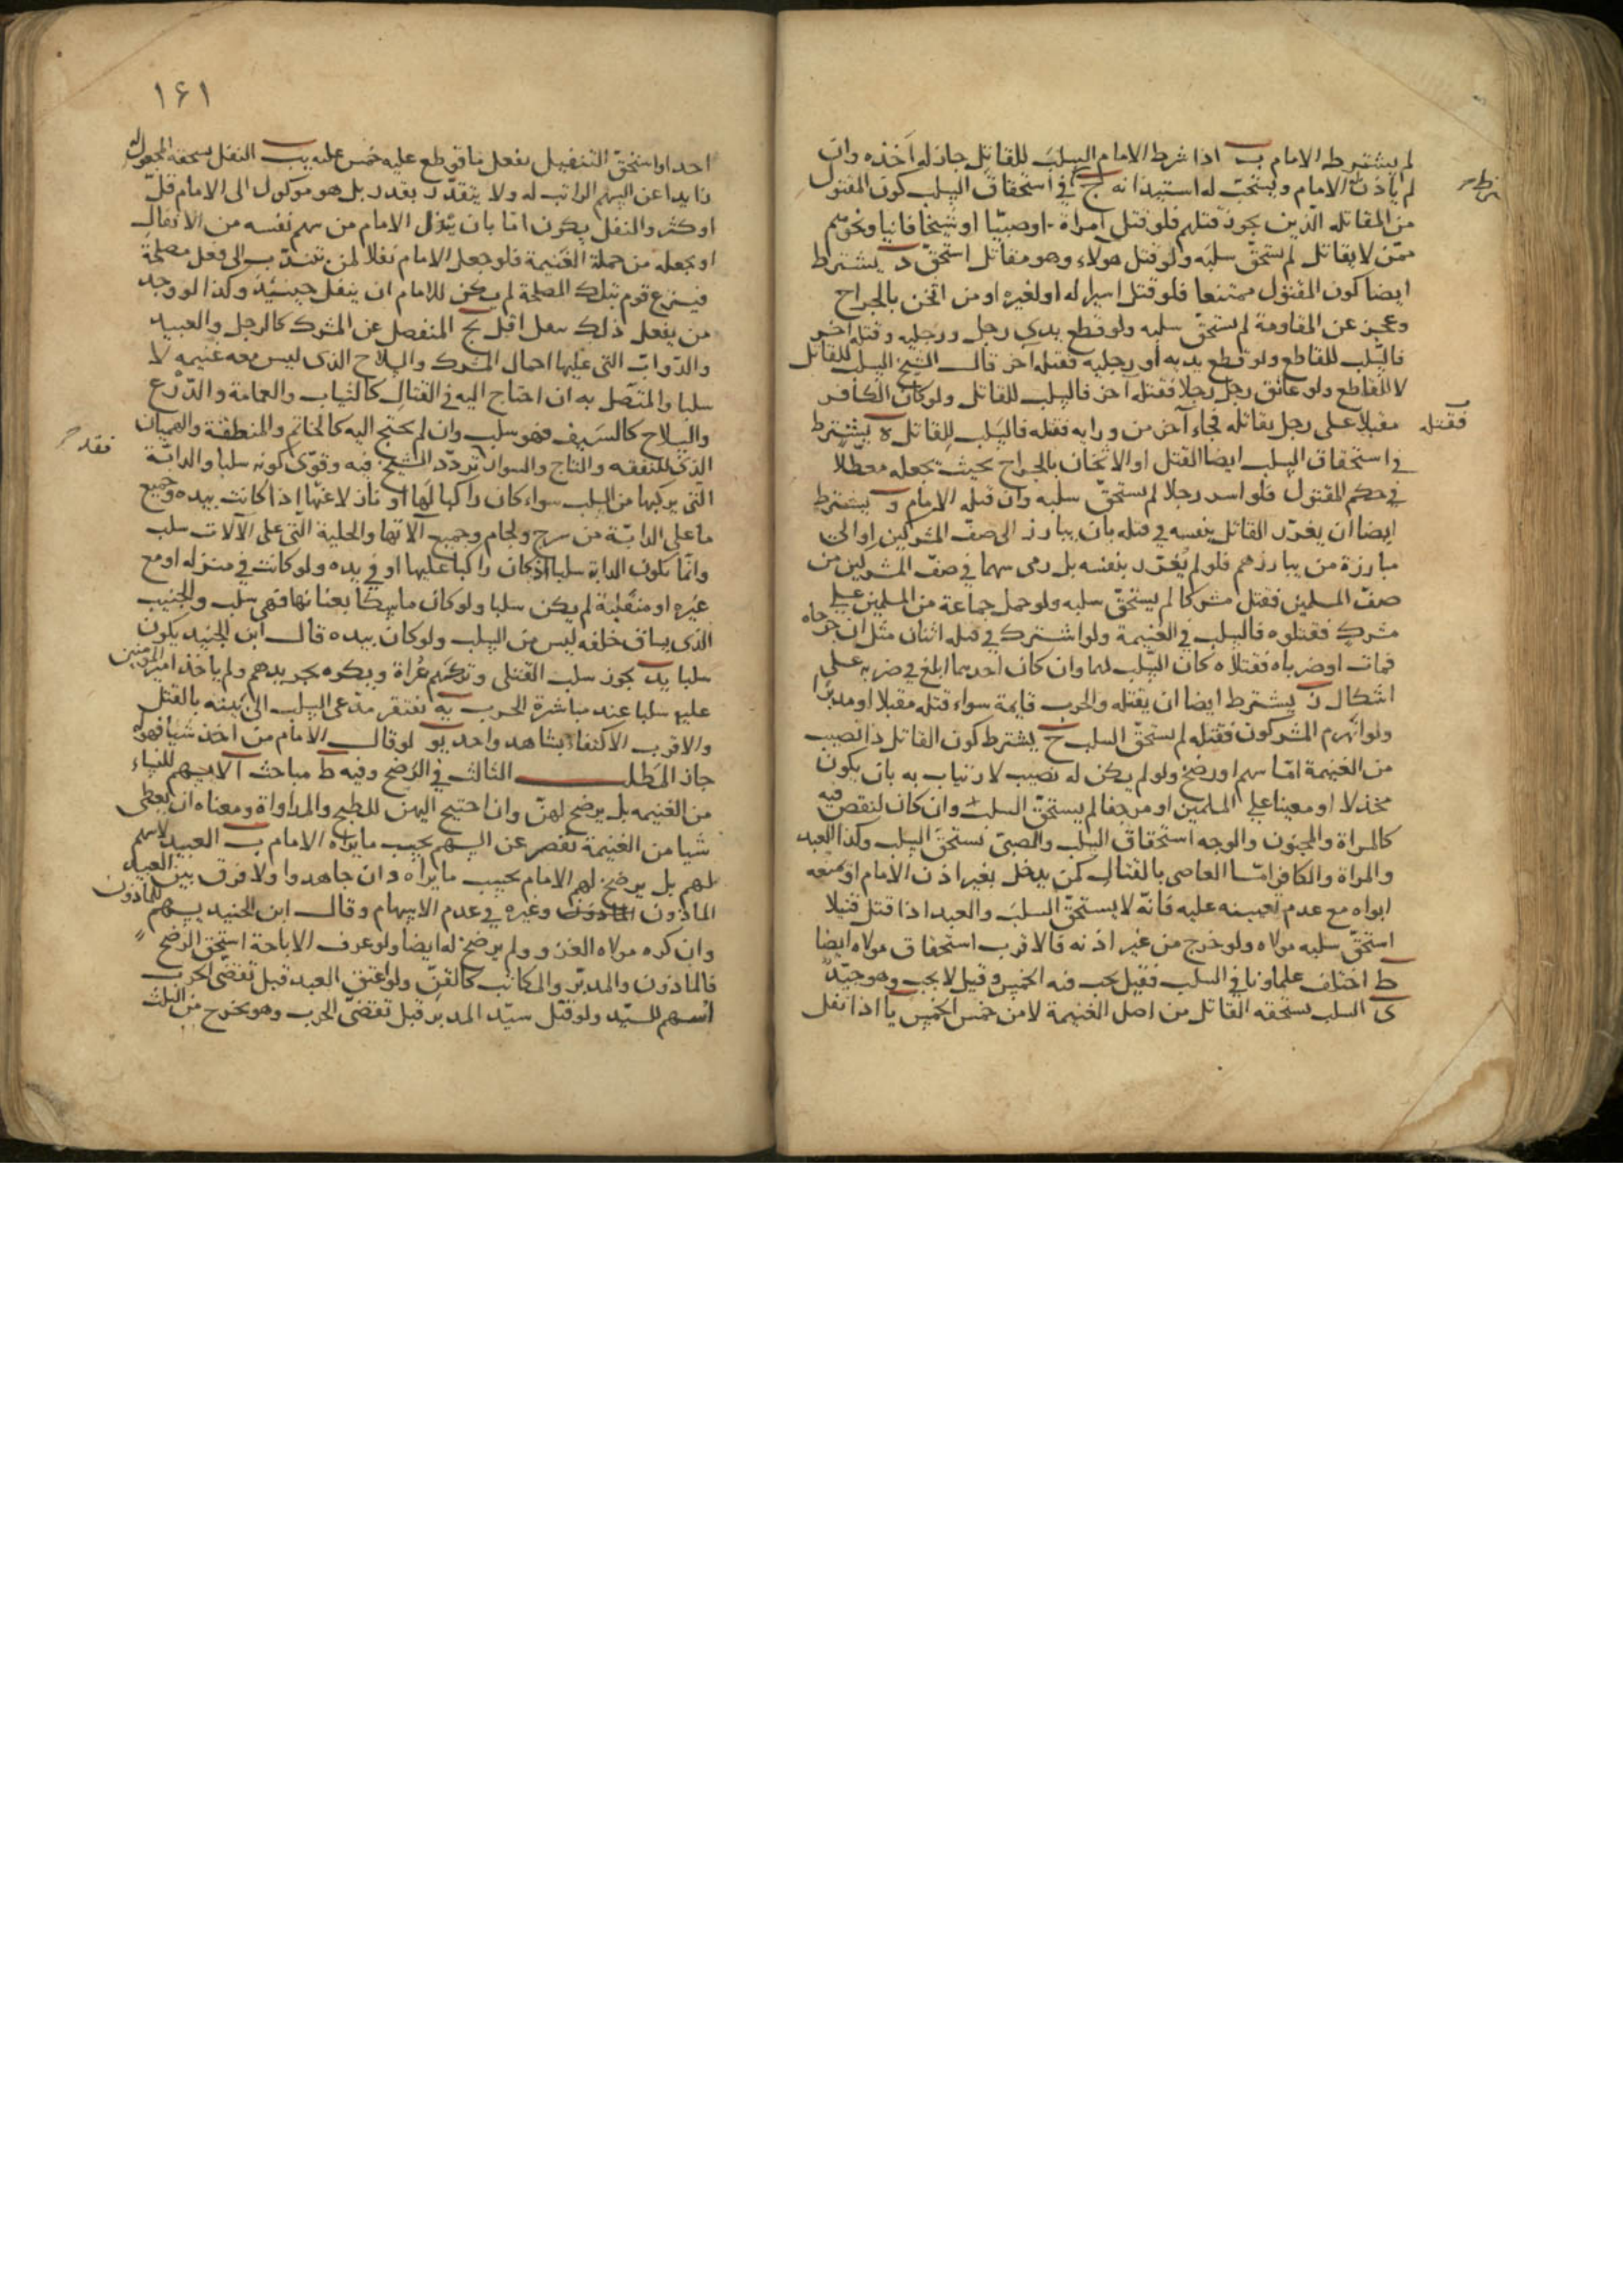 لم يشترطه الامام ب اذا شرط الامام السلب للقاتل جاز له اخذه وان
لم ياذن الامام ويستحب له استيذانه ج في استحقاق السلب كون المقتول
من المقاتله الذين يجوز قتلهم فلو قتل امراة او صبيا او شيخا فانيا ونحوهم
ممن لا يقاتل لم يستحق سلبه ولو قتل هولاء وهو مقاتل استحق د يشترط
ايضا كون المقتول ممتنعا فلو قتل اسيرا له او لغيره او من اثخن بالجراح
وعجز عن المقاومة لم يستحق سلبه ولو قطع يدي رجل ورجليه وقتله اخر
فالسلب للقاطع ولو قطع يديه او رجليه فقتله اخر قال الشيخ السلب للقاتل
لا للقاطع ولو عانق رجل رجلا فقتله آخر فالسلب للقاتل ولو كان الكافر
مقبلا على رجل يقاتله فجاء آخر من ورايه فقتله فالسلب للقاتل ه يشترط
فقتله
في استحقاق السلب ايضا القتل او الاثخان بالجراح بحيث يجعله معطلا
في حكم المقتول فلو اسر رجلا لم يستحق سلبه وان قتله الامام و يشترط
ايضا ان يغرر القاتل بنفسه في قتله بان يبارز الى صف المشركين او الى
مبارزة من يبارزهم فلو لم يغرر بنفسه بل رمى سهما في صف المشركين من
صف المسلمين فقتل مشركا لم يستحق سلبه ولو حمل جماعة من المسلمين على
مشرك فقتلوه فالسلب في الغنيمة ولو اشترك في قتله اثنان مثل ان جرحاه
فمات او ضرباه فقتلاه كان السلب لهما وان كان احدهما ابلغ في ضربه على
اشكال ز يشترط ايضا ان يقتله والحرب قايمة سواء قتله مقبلا او مدبرا
ولو انهزم المشركون فقتله لم يستحق السلب ح يشترط كون القاتل ذا نصيب
من الغنيمة اما سهم او رضخ ولو لم يكن له نصيب لارتياب به بان يكون
مخذلا او معينا على المسلمين او مرجفا لم يستحق السلب وان كان لنقص فيه
كالمراة والمجنون والوجه استحقاق السلب والصبي يستحق السلب وكذا العبد
والمراة والكافر اما العاصي بالقتال كمن يدخل بغير اذن الامام او منعه
ابواه مع عدم تعيينه عليه فانه لا يستحق السلب والعبد اذا قتل قتيلا
استحق سلبه مولاه ولو خرج من غير اذنه فالاقرب استحقاق مولاه ايضا
ط اختلف علماونا في السلب فقيل يجب فيه الخمس وقيل لا يجب وهو جيد
ى السلب يستحقه القاتل من اصل الغنيمة لا من خمس الخمس يا اذا نفل
١۶١
احدا واستحق التنفيل بفعل ما قوطع عليه خمس عليه يب النفل يستحقه المجعول له
زايدا عن السهم الراتب له ولا يتقدر بقدر بل هو موكول الى الامام قل
او كثر والنفل يكون اما بان يبذل الامام من سهم نفسه من الانفال
او يجعله من جملة الغنيمة فلو جعل الامام نفلا لمن تندب الى فعل مصلحة
فتبرع قوم بتلك المصلحة لم يكن للامام ان ينفل حينئذ وكذا لو وجد
من يفعل ذلك بنفل اقل يج المنفصل عن المشرك كالرحل والعبيد
والدواب التي عليها احمال المشرك والسلاح الذي ليس معه غنيمه لا
سلبا والمتصل به ان احتاج اليه في القتال كالثياب والعمامة والدرع
والسلاح كالسيف فهو سلب وان لم يحتج اليه كالخاتم والمنطقة والهميان
الذي للنفقه والتاج والسوار تردد الشيخ فيه وقوى كونه سلبا والدابة
التي يركبها من السلب سواء كان راكبا لها او نازلا عنها اذا كانت بيده وجميع
ما على الدابة من سرج ولجام وجميع آلاتها والحلية التي على الآلات سلب
وانما تكون الدابة سلبا اذ كان راكبا عليها او في يده ولو كانت في منزله او مع
غيره او منفلتة لم يكن سلبا ولو كان ماسكا بعنانها فهي سلب والجنيب
الذي يساق خلفه ليس من السلب ولو كان بيده قال ابن الجنيد يكون
سلبا يد يجوز سلب القتلى وتركهم عراة ويكره تجريدهم ولم ياخذ امير المومنين
عليه سلبا عند مباشرة الحرب يه يفتقر مدعي السلب الى بينه بالقتل
والاقرب الاكتفاء بشاهد واحد يو لو قال الامام من اخذ شيا فهو له
جاز المطلب الثالث في الرضخ وفيه ط مباحث ا لا يسهم للنساء
من الغنيمه بل يرضخ لهن وان احتيج اليهن للطبخ والمداواة ومعناه ان يعطى
شيا من الغنيمة تقصر عن السهم بحسب ما يراه الامام ب العبيد لا سهم
لهم بل يرضخ لهم الامام بحسب ما يراه وان جاهدوا ولا فرق بين العبيد
الماذون الماذون وغيره في عدم الاسهام وقال ابن الجنيد يسهم للماذون
وان كره مولاه الغزو ولم يرضخ له ايضا ولو عرف الاباحة استحق الرضخ
فالماذون والمدبر والمكاتب كالقن ولو اعتق العبد قبل تقضى الحرب
اسهم للسيد ولو قتل سيد المدبر قبل تقضى الحرب وهو يخرج من الثلث